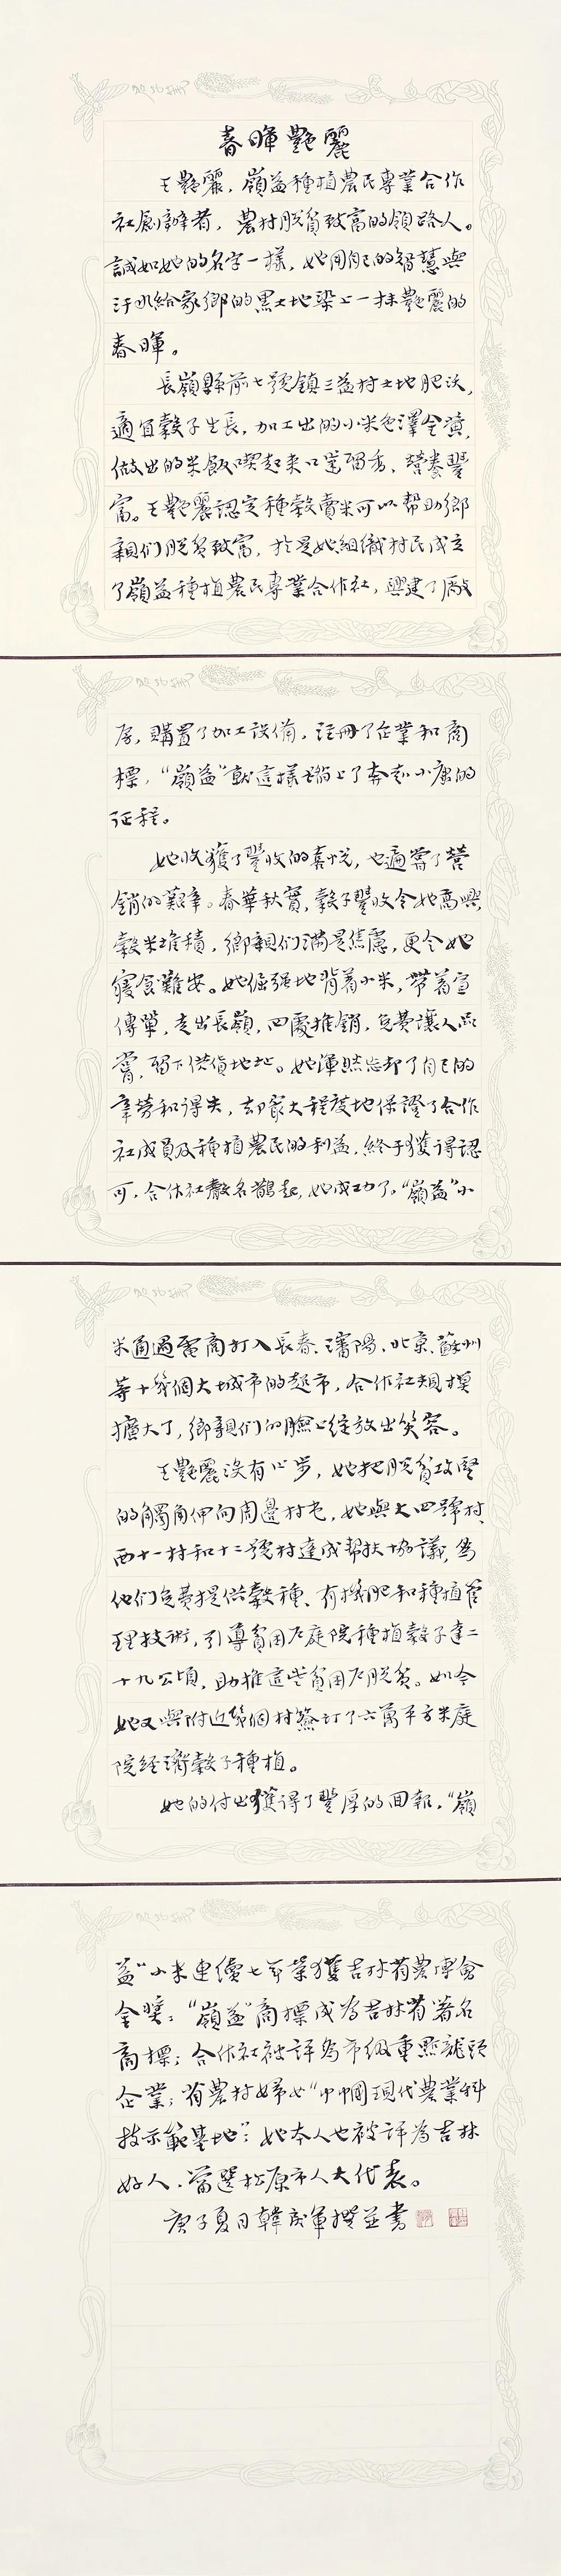 春暉艷麗
王艷麗，嶺益種植農民專業合作
社創辦者，農村脫貧致富的領路人。
誠如她的名字一樣，她用自己的智慧與
汗水給家鄉的黑土地染上一抹艷麗的
春暉。
長嶺縣前七號鎮三益村土地肥沃，
適宜穀子生長，加工出的小米色澤金黃，
做出的米飯喫起來口感留香，營養豐
富。王艷麗認定種穀賣米可以幫助鄉
親們脫貧致富，於是她組織村民成立
了嶺益種植農民專業合作社，興建了廠
房，購置了加工設備，註冊了企業和商
標，“嶺益”就這樣踏上了奔赴小康的
征程。
她收獲了豐收的喜悅，也遍嘗了營
銷的艱辛。春華秋實，穀子豐收令她高興，
穀米堆積，鄉親們滿是焦慮，更令她
寢食難安。她倔强地背着小米，帶着宣
傳單，走出長嶺，四處推銷，免費讓人品
嘗，留下供貨地址。她渾然忘却了自己的
辛勞和得失，却最大程度地保證了合作
社成員及種植農民的利益，終于獲得認
可，合作社聲名鵲起，她成功了。“嶺益”小
米通過電商打入長春、瀋陽、北京、蘇州
等十幾個大城市的超市，合作社規模
擴大了，鄉親們的臉上綻放出笑容。
王艷麗没有止步，她把脫貧攻堅
的觸角伸向周邊村屯，她與大四號村、
西十一村和十二號村達成幫扶協議，爲
他們免費提供穀種、有機肥和種植管
理技術，引導貧困户庭院種植穀子達二
十九公頃，助推這些貧困户脫貧。如今
她又與附近幾個村簽訂了六萬平方米庭
院經濟穀子種植。
她的付出獲得了豐厚的回報，“嶺
益”小米連續七年榮獲吉林省農博會
金獎；“嶺益”商標成為吉林省著名
商標；合作社被評爲市級重點龍頭
企業；省農村婦女“巾幗現代農業科
技示範基地”；她本人也被評爲吉林
好人，當選松原市人大代表。
庚子夏日韓彦軍撰並書